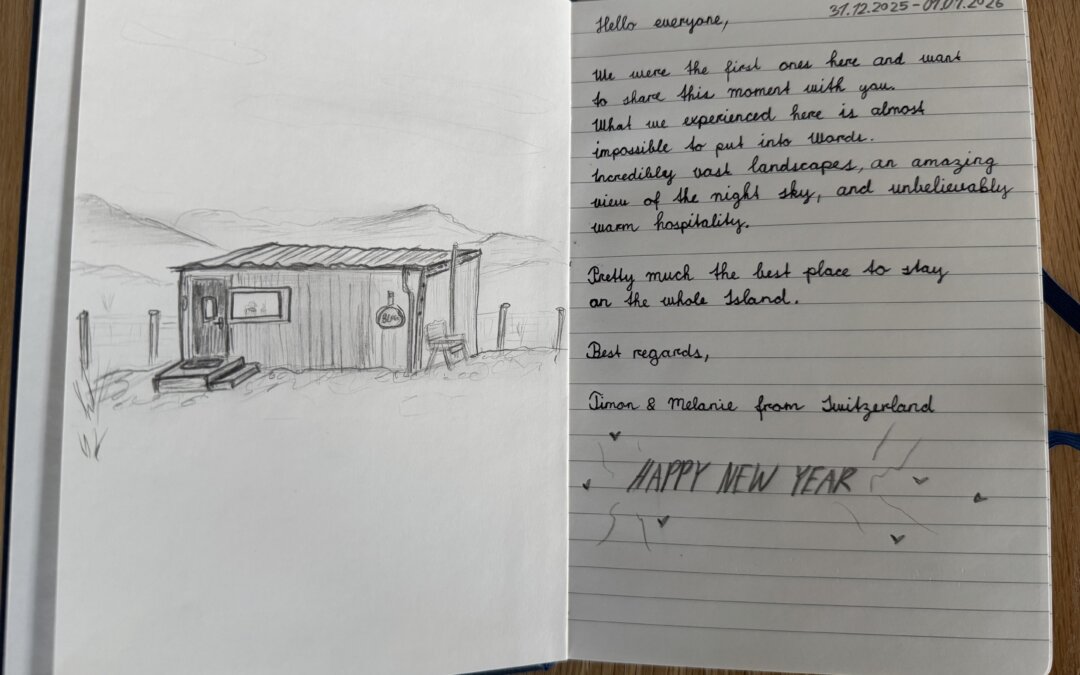 31.12.2025 - 01.01.2026
Hello everyone,
We were the first ones here and want
to share this moment with you.
What we experienced here is almost
impossible to put into Words.
Incredibly vast landscapes, an amazing
view of the night sky, and unbelievably
warm hospitality.
Pretty much the best place to stay
on the whole Island.
Best regards,
Timon & Melanie from Switzerland
HAPPY NEW YEAR